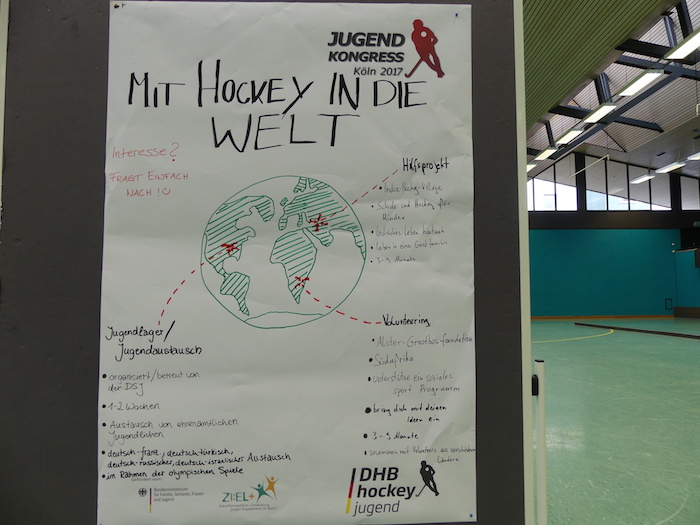 JUGEND
KONGRESS
Köln 2017
MIT HOCKEY IN DIE
WELT
Interesse?
FRAGT EINFACH
NACH!☺
Hilfsprojekt
• India-Hockey-Village
• Schule und Hockey für
Kinder
• Leben in einer Gastfamilie
• 3-9 Monate
Jugendlager/
Jugendaustausch
• organisiert/betreut von
der DSJ
• 1-2 Wochen
• Austausch von ehrenamtlichen
Jugendlichen
• deutsch-franz., deutsch-türkisch,
deutsch-russischer, deutsch-israelischer Austausch
• im Rahmen der olympischen Spiele
Volunteering
• Südafrika
• unterstütze ein soziales
sport. Programm
• bring dich mit deinen
Ideen ein
• 3-9 Monate
• zusammen mit Volunteers aus verschiedenen
Ländern
Gefördert vom:
Bundesministerium
für Familie, Senioren, Frauen
und Jugend
ZI:EL+
DHB
hockey
jugend